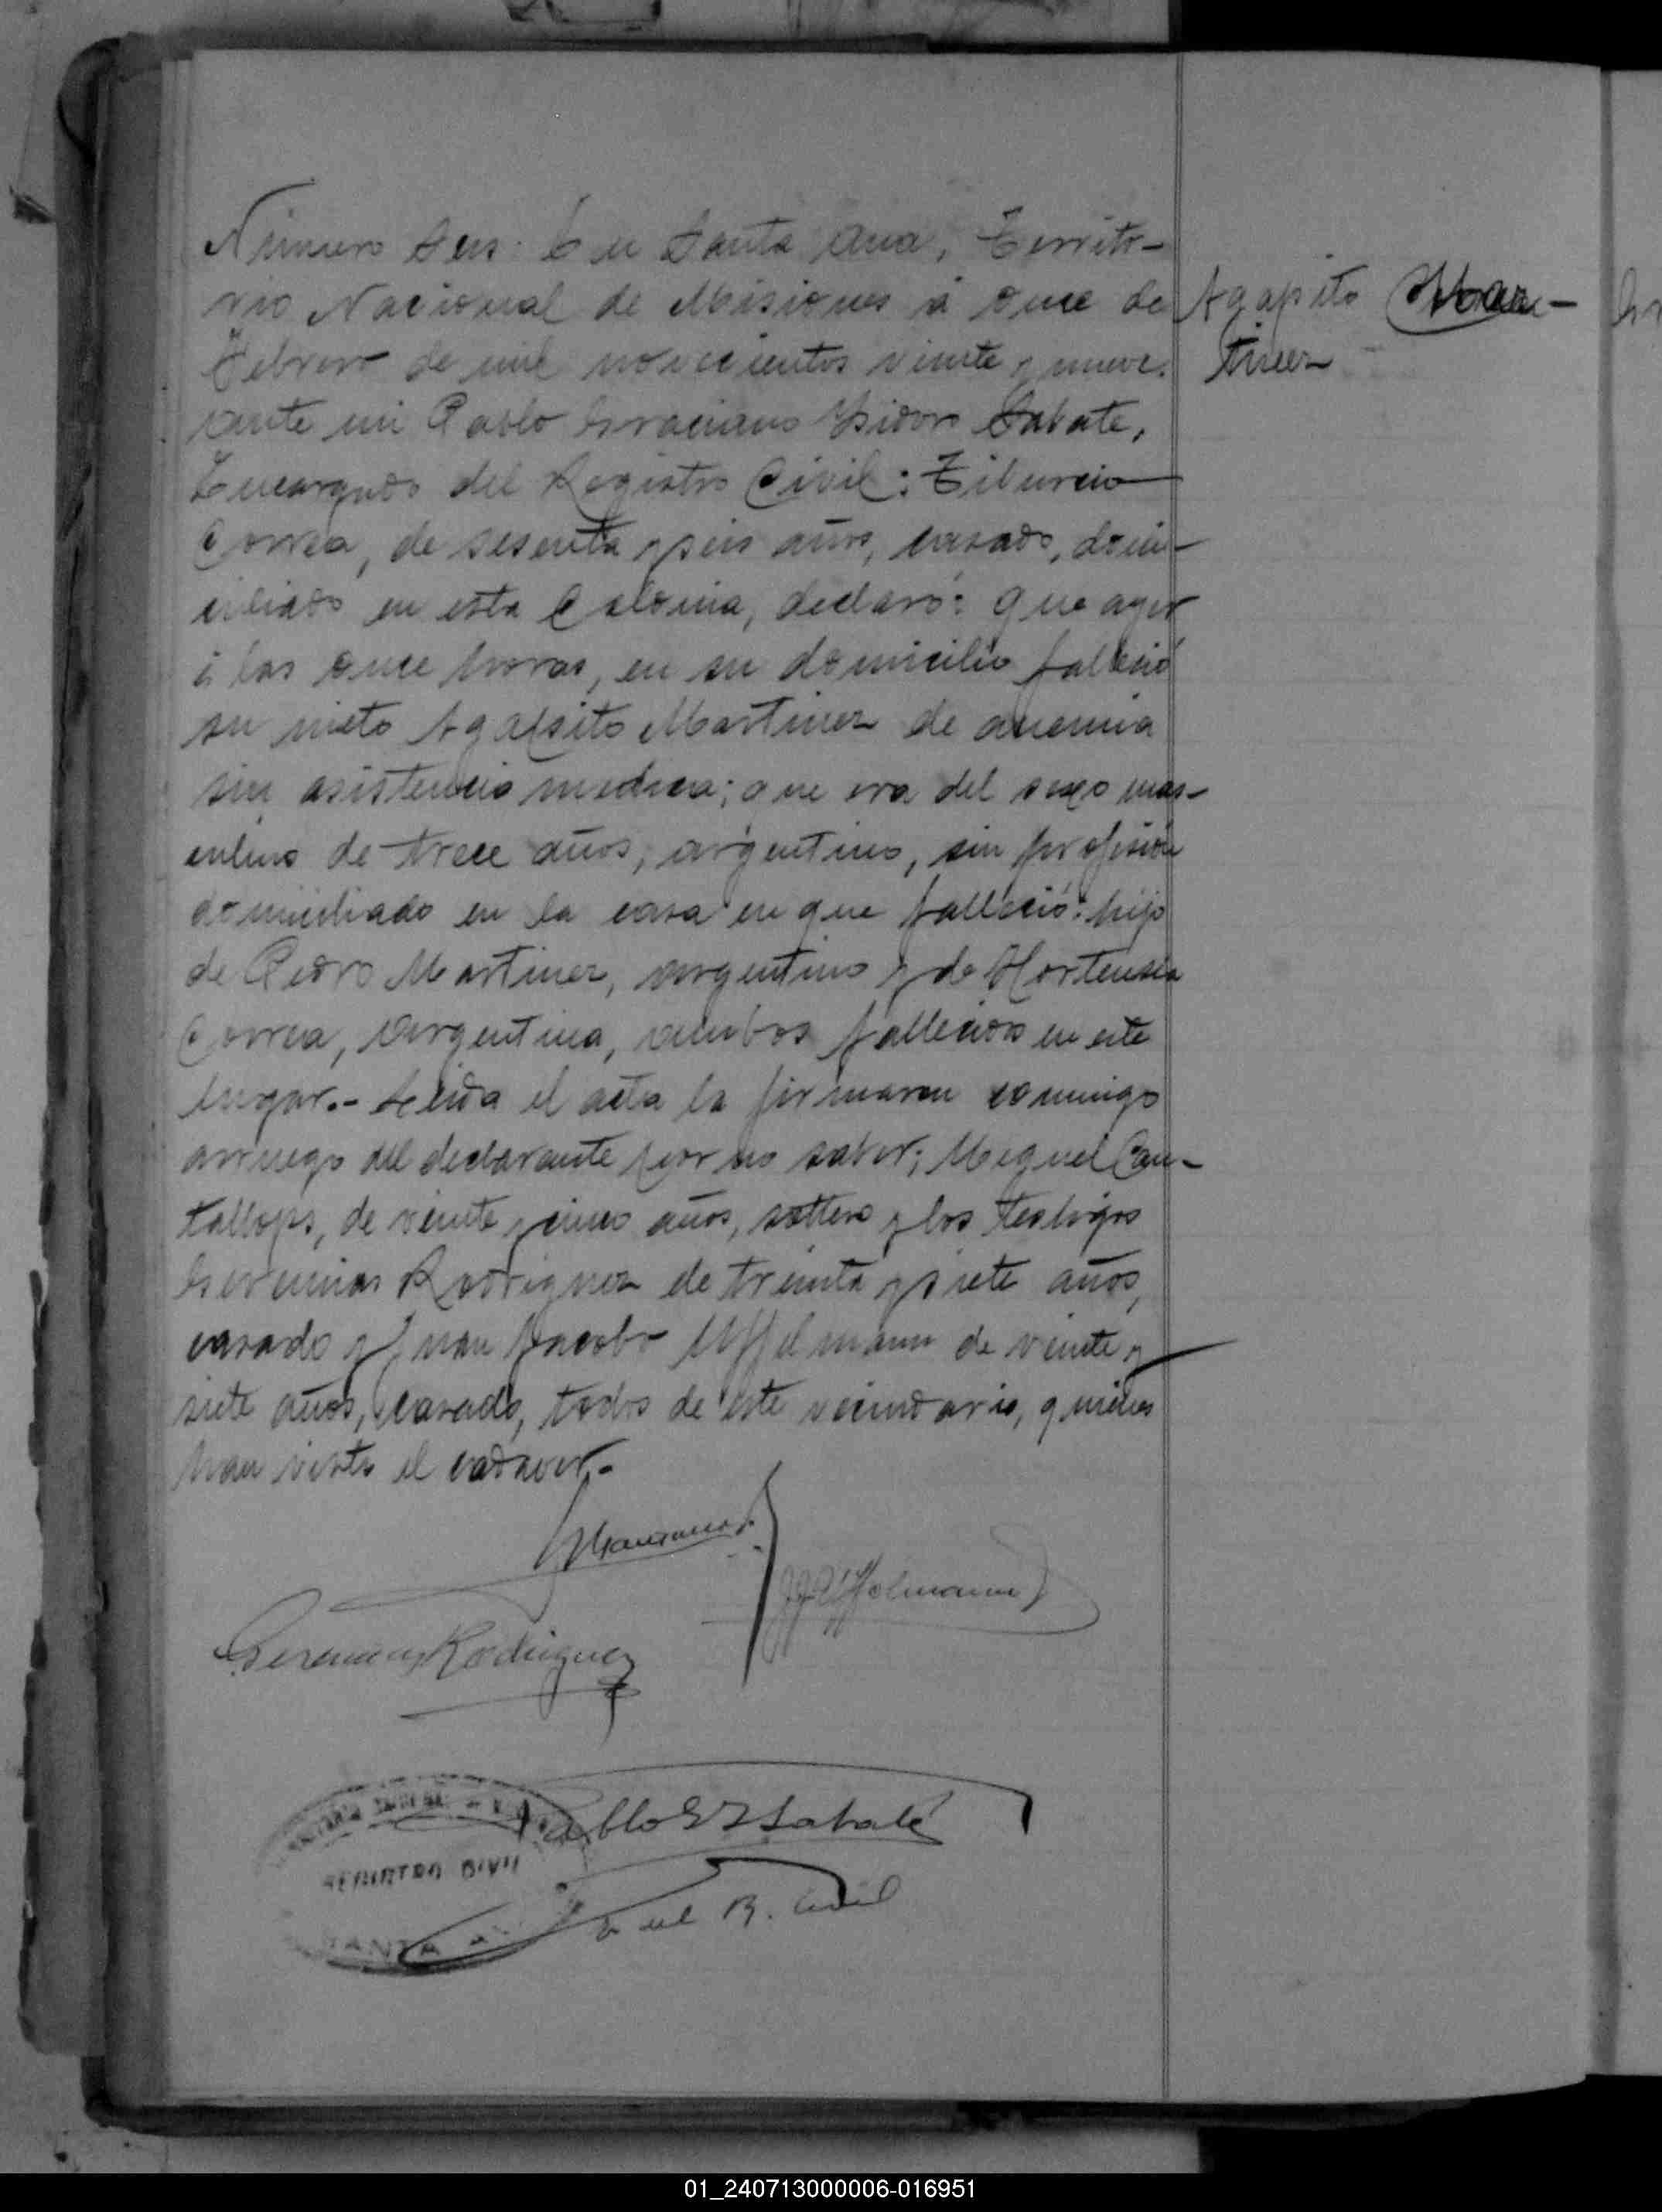 Número seis: En Santa Ana, Territo-
rio Nacional de Misiones á once de
Febrero de mil novecientos veinte y nueve,
ante mi Pablo Graciano Ysidoro Sabate,
Encargado del Registro Civil: Tiburcio
Correa, de sesenta y seis años, casado, domi-
ciliado en esta Colonia, declaró: que ayer
á las once horas, en su domicilio falleció
su nieto Agapito Martinez de anemia
sin asistencia medica; que era del sexo mas-
culino de trece años, argentino, sin profesión
domiciliado en la casa en que falleció: hijo
de Pedro Martinez, argentino y de Hortensia
Correa, argentina, ambos fallecidos en este
lugar.- Leida el acta la firmaron conmigo
arruego del declarante por no saber; Miguel Can-
tallops, de veinte y cinco años, soltero y los testigos
Geremias Rodriguez de treinta y siete años,
casado y Juan Jacobo Uffelmann de veinte y
siete años, casado, todos de este vecindario, quienes
han visto el cadaver.-
Agapito Mar-
tinez
J J Uffelmann
Geremias Rodriguez
Pablo G Y Sabaté
E del R. Civil
REGISTRO CIVIL
SANTA A
01_240713000006-016951